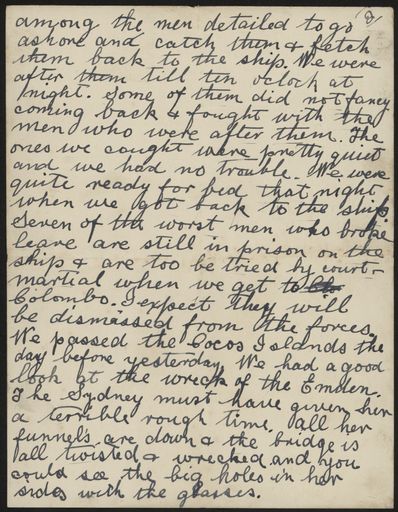 8)
among the men detailed to go
ashore and catch them & fetch
them back to the ship. We were
after them till ten oclock at
night. Some of them did not fancy
coming back & fought with the
men who were after them. The
ones we caught were pretty quiet
and we had no trouble. We were
quite ready for bed that night
when we got back to the ship
Seven of the worst men who broke
leave are still in prison on the
ship & are too be tried by court-
martial when we get to
Colombo. I expect they will
be dismassed from the forces.
We passed the Cocos Islands the
day before yesterday. We had a good
look at the wreck of the Emden.
The Sydney must have given her
a terrible rough time. all her
funnel's are down & the bridge is
all twisted & wrecked and you
could see the big holes in her
sides with the glasses.